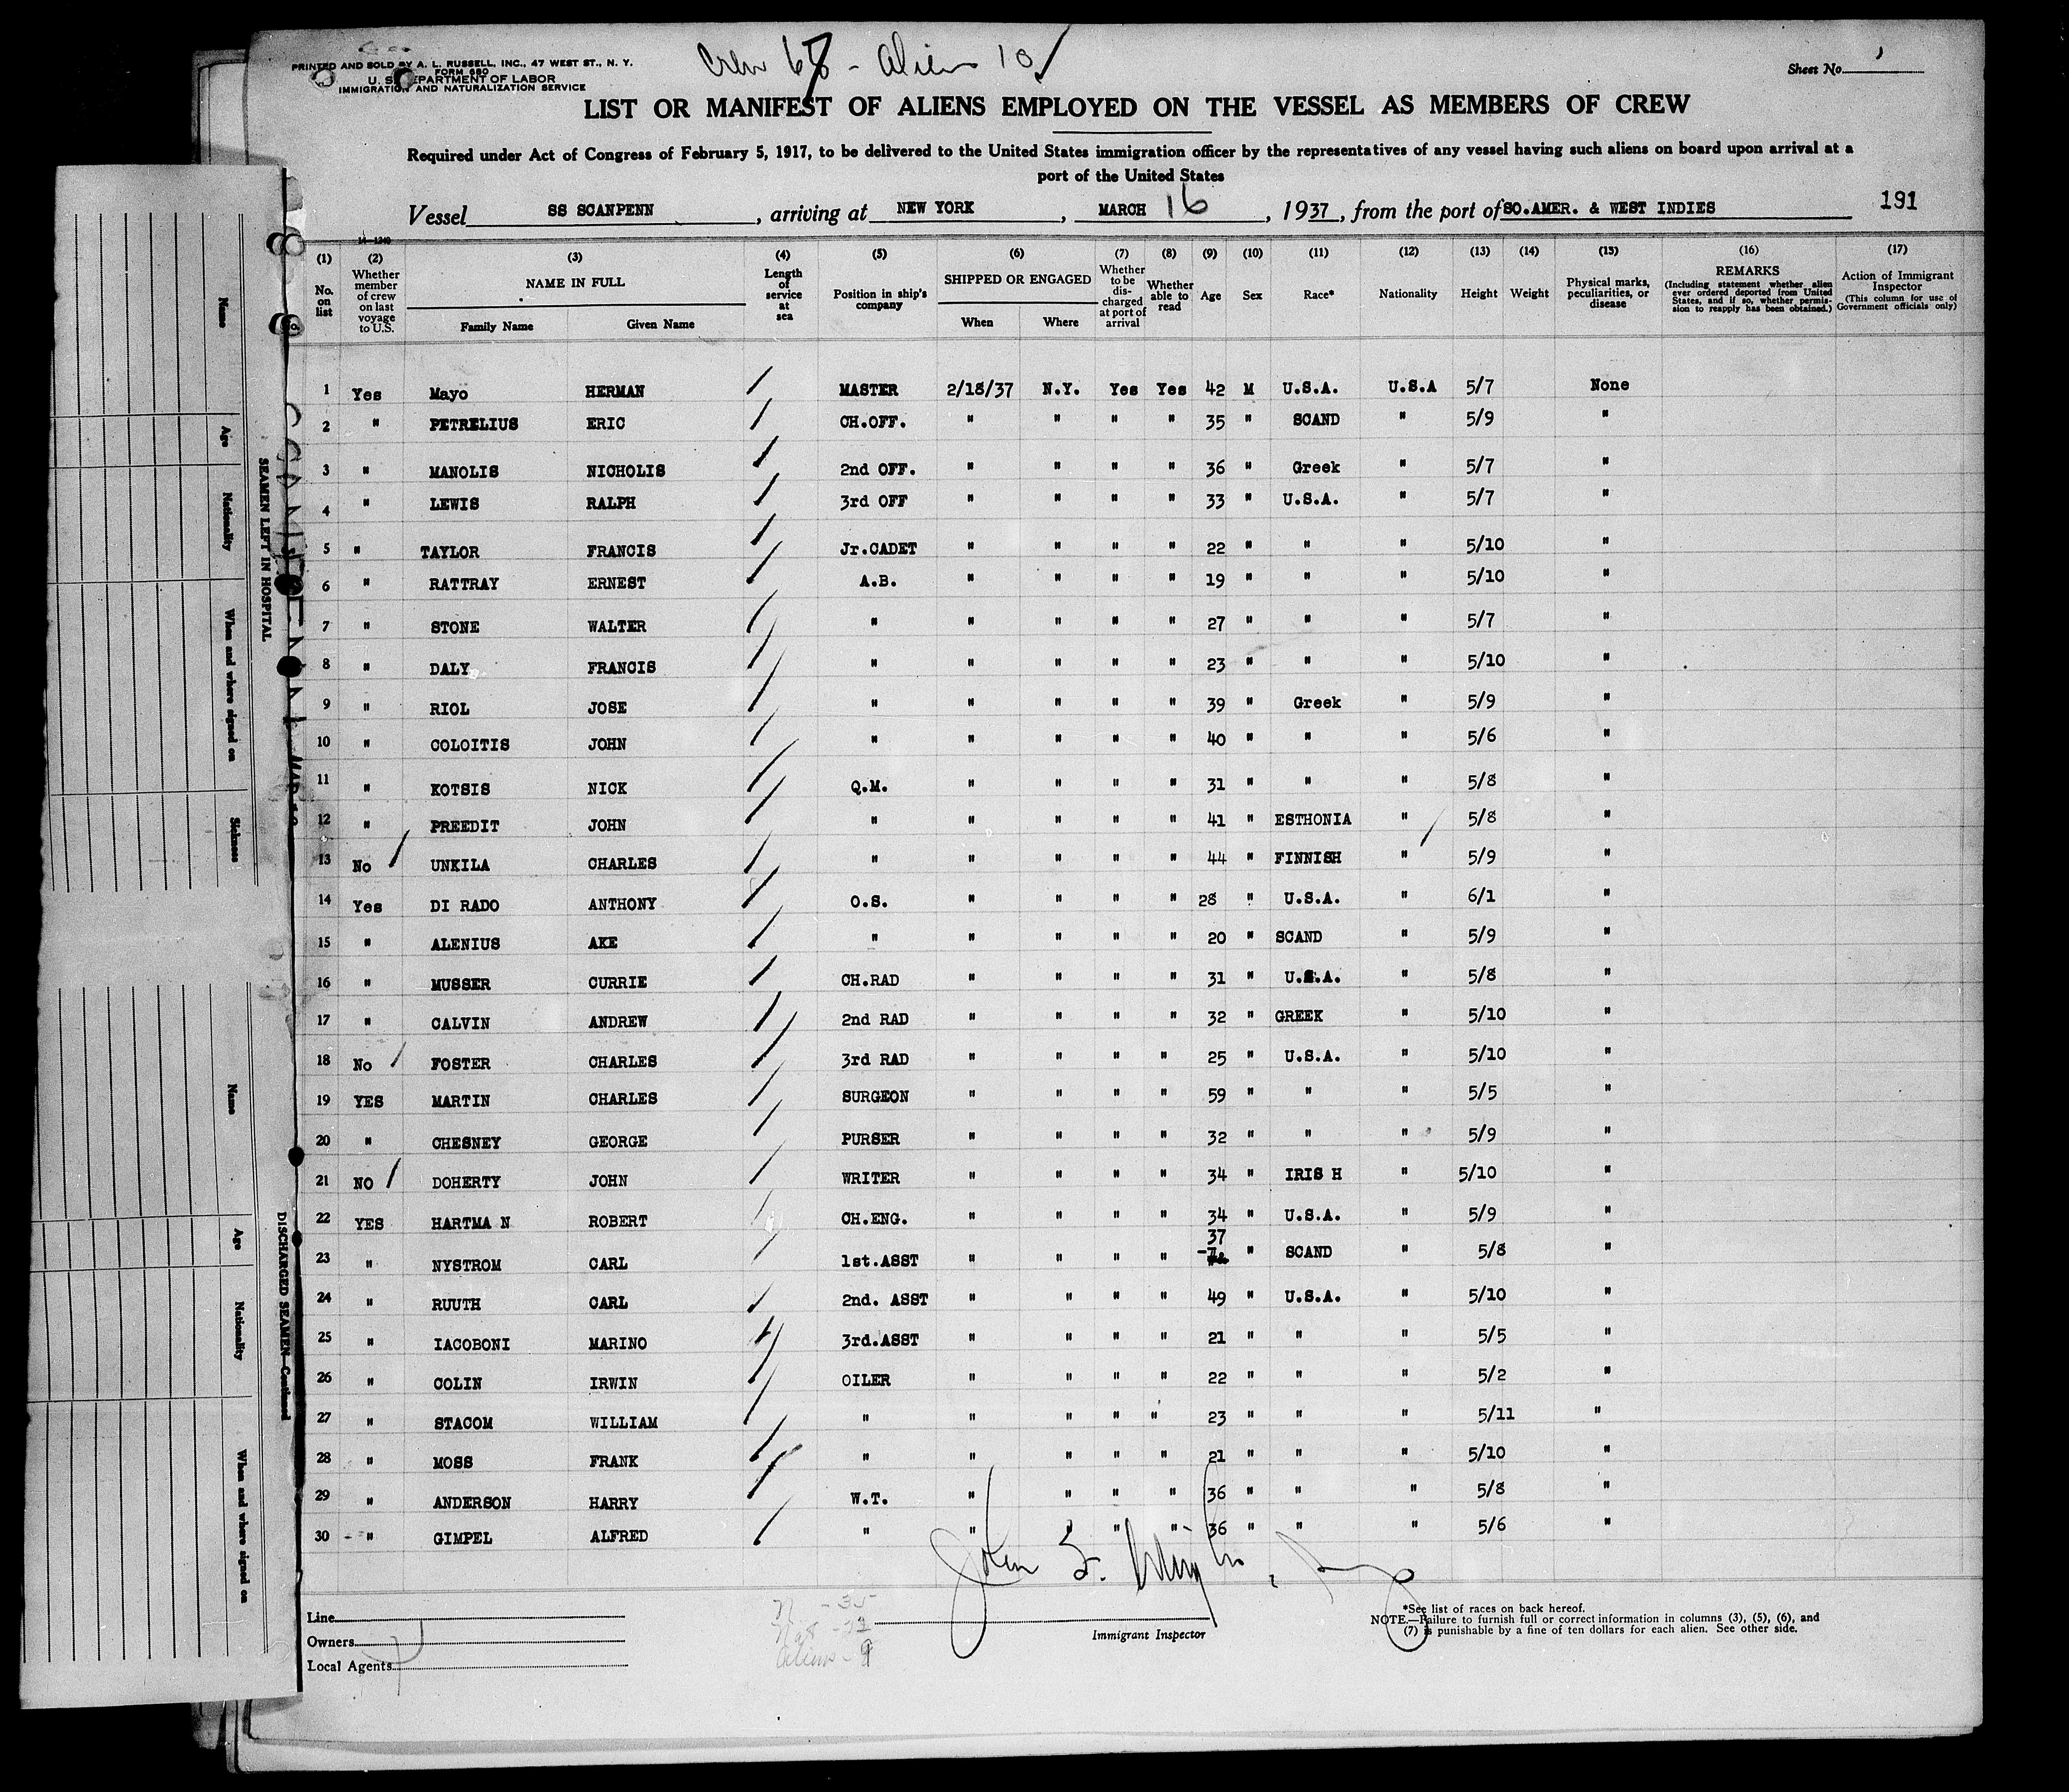 Crew 67 - Aliens 10
PRINTED AND SOLD BY A. L. RUSSELL, INC., 47 WEST ST., N. Y.
FORM 680
U. S. DEPARTMENT OF LABOR
IMMIGRATION AND NATURALIZATION SERVICE
Sheet No. 1
LIST OR MANIFEST OF ALIENS EMPLOYED ON THE VESSEL AS MEMBERS OF CREW
Required under Act of Congress of February 5, 1917, to be delivered to the United States immigration officer by the representatives of any vessel having such aliens on board upon arrival at a
port of the United States
Vessel SS SCANPENN, arriving at NEW YORK, MARCH 16, 1937, from the port of SO.AMER. & WEST INDIES 191
14-1240
(1) No. on list
(2) Whether member of crew on last voyage to U.S.
(3) NAME IN FULL Family Name Given Name
(4) Length of service at sea
(5) Position in ship's company
(6) SHIPPED OR ENGAGED When Where
(7) Whether to be discharged at port of arrival
(8) Whether able to read
(9) Age
(10) Sex
(11) Race*
(12) Nationality
(13) Height
(14) Weight
(15) Physical marks, peculiarities, or disease
(16) REMARKS (Including statement whether alien ever ordered deported from United States, and if so, whether permission to reapply has been obtained.)
(17) Action of Immigrant Inspector (This column for use of Government officials only)
1 Yes Mayo HERMAN MASTER 2/18/37 N.Y. Yes Yes 42 M U.S.A. U.S.A 5/7 None
2 " PETRELIUS ERIC CH.OFF. " " " " 35 " SCAND " 5/9 "
3 " MANOLIS NICHOLIS 2nd OFF. " " " " 36 " Greek " 5/7 "
4 " LEWIS RALPH 3rd OFF " " " " 33 " U.S.A. " 5/7 "
5 " TAYLOR FRANCIS Jr.CADET " " " " 22 " " " 5/10 "
6 " RATTRAY ERNEST A.B. " " " " 19 " " " 5/10 "
7 " STONE WALTER " " " " " 27 " " " 5/7 "
8 " DALY FRANCIS " " " " " 23 " " " 5/10 "
9 " RIOL JOSE " " " " " 39 " Greek " 5/9 "
10 " COLOITIS JOHN " " " " " 40 " " " 5/6 "
11 " KOTSIS NICK Q.M. " " " " 31 " " " 5/8 "
12 " PREEDIT JOHN " " " " " 41 " ESTHONIA " 5/8 "
13 No UNKILA CHARLES " " " " " 44 " FINNISH " 5/9 "
14 Yes DI RADO ANTHONY O.S. " " " " 28 " U.S.A. " 6/1 "
15 " ALENIUS AKE " " " " " 20 " SCAND " 5/9 "
16 " MUSSER CURRIE CH.RAD " " " " 31 " U.S.A. " 5/8 "
17 " CALVIN ANDREW 2nd RAD " " " " 32 " GREEK " 5/10 "
18 No FOSTER CHARLES 3rd RAD " " " " 25 " U.S.A. " 5/10 "
19 YES MARTIN CHARLES SURGEON " " " " 59 " " " 5/5 "
20 " CHESNEY GEORGE PURSER " " " " 32 " " " 5/9 "
21 NO DOHERTY JOHN WRITER " " " " 34 " IRIS H " 5/10 "
22 YES HARTMA N ROBERT CH.ENG. " " " " 34 " U.S.A. " 5/9 "
23 " NYSTROM CARL 1st.ASST " " " " 37 " SCAND " 5/8 "
24 " RUUTH CARL 2nd. ASST " " " " 49 " U.S.A. " 5/10 "
25 " IACOBONI MARINO 3rd.ASST " " " " 21 " " " 5/5 "
26 " COLIN IRWIN OILER " " " " 22 " " " 5/2 "
27 " STACOM WILLIAM " " " " " 23 " " " 5/11 "
28 " MOSS FRANK " " " " " 21 " " " 5/10 "
29 " ANDERSON HARRY W.T. " " " " 36 " " " 5/8 "
30 " GIMPEL ALFRED " " " " " 36 " " " 5/6 "
John S.
Line
Owners
Local Agents
- 35
Aliens - 9
Immigrant Inspector
*See list of races on back hereof.
NOTE.—Failure to furnish full or correct information in columns (3), (5), (6), and
(7) is punishable by a fine of ten dollars for each alien. See other side.
SEAMEN LEFT IN HOSPITAL
Name
Age
Nationality
When and where signed on
Sickness
DISCHARGED SEAMEN—Continued
Name
Age
Nationality
When and where signed on